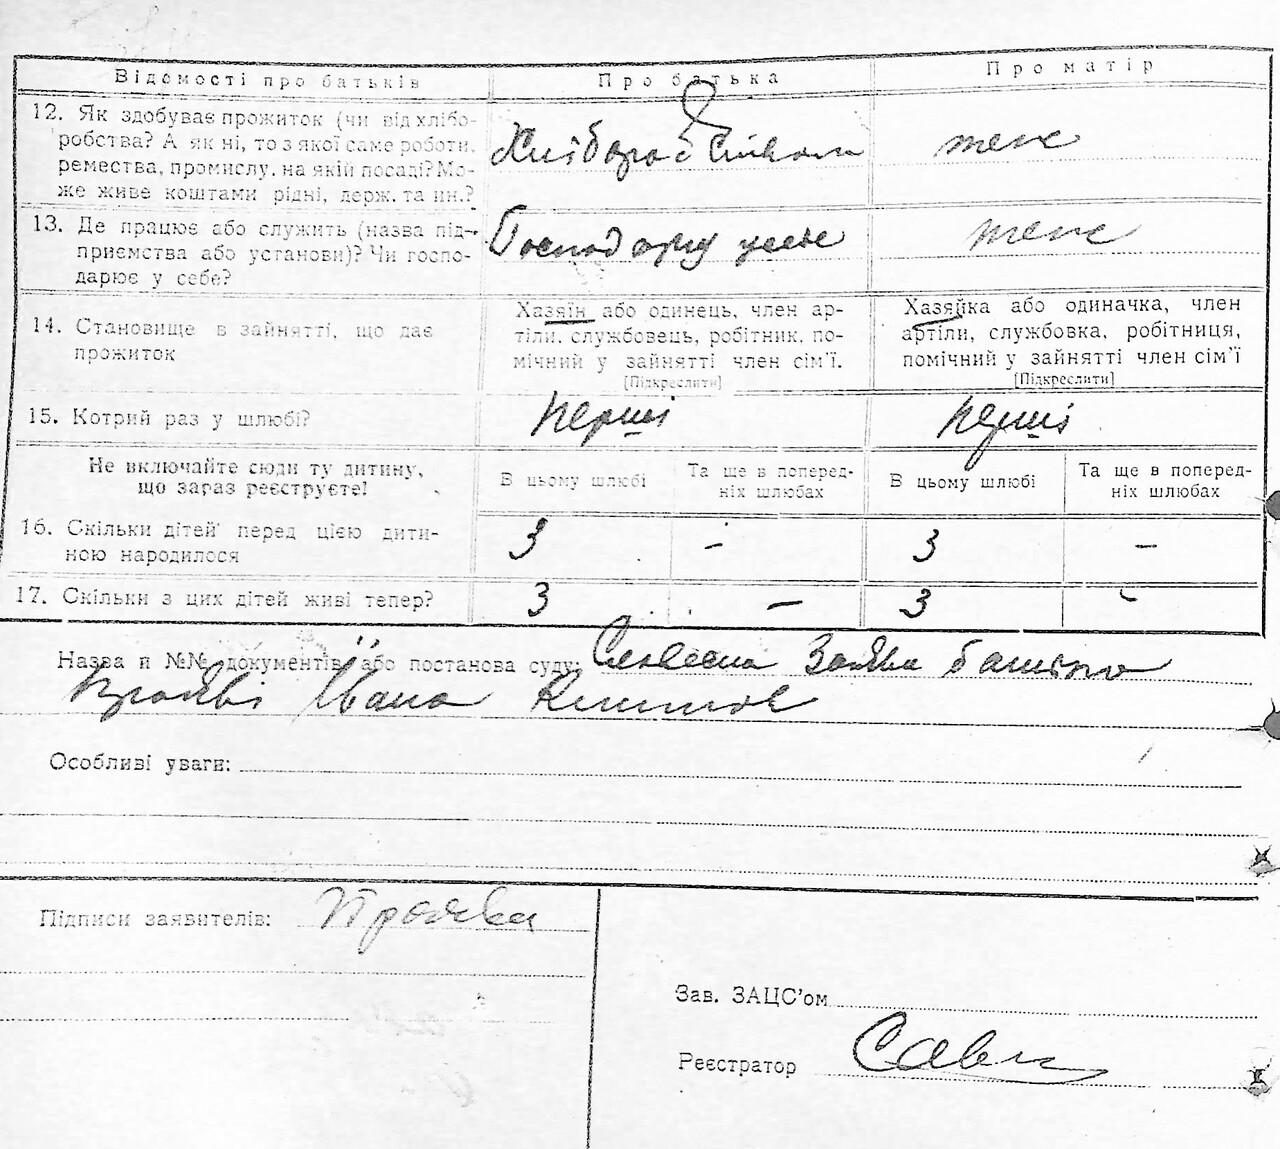 Відомості про батьків Про батька Про матір
12. Як здобуває прожиток (чи від хлібо-
робства? А як ні, то з якої саме роботи,
ремества, промислу, на якій посаді? Мо-
же живе коштами рідні, держ. та ин.?
Хлібороб теж
13. Де працює або служить (назва під-
приємства або установи)? Чи госпо-
дарює у себе?
Господарку теж
14. Становище в зайнятті, що дає
прожиток
Хазяїн або одинець, член ар-
тіли, службовець, робітник, по-
мічний у зайнятті член сім'ї.
[Підкреслити]
Хазяйка або одиначка, член
артіли, службовка, робітниця,
помічний у зайнятті член сім'ї
[Підкреслити]
15. Котрий раз у шлюбі? перші перші
Не включайте сюди ту дитину,
що зараз реєструєте!
В цьому шлюбі
Та ще в поперед-
ніх шлюбах
В цьому шлюбі
Та ще в поперед-
ніх шлюбах
16. Скільки дітей перед цією дити-
ною народилося
3 – 3 –
17. Скільки з цих дітей живі тепер? 3 – 3 –
Назва й №№ документів або постанова суду: Словесна Заява батька
Івана
Особливі уваги:
Підписи заявителів:
Зав. ЗАЦС'ом
Реєстратор